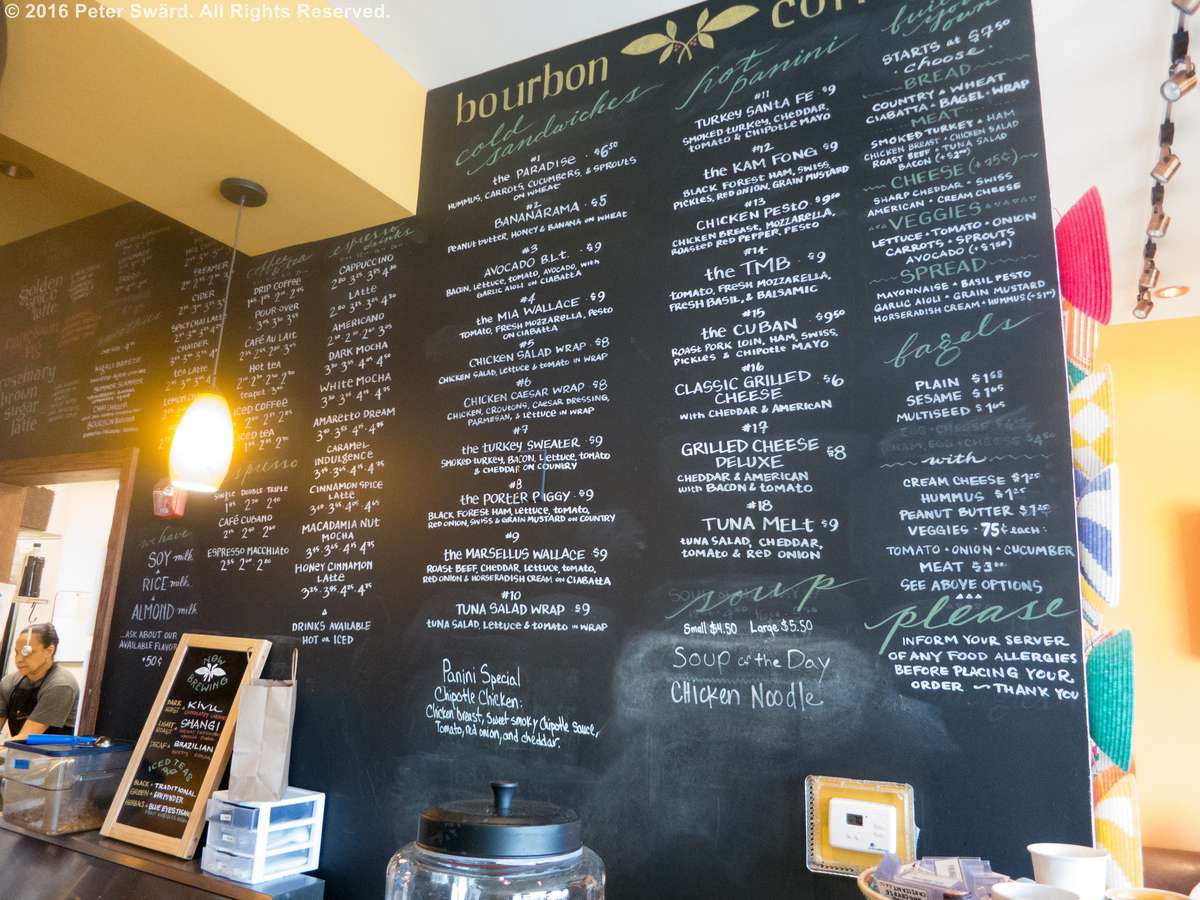 © 2016 Peter Swärd. All Rights Reserved.
bourbon
cold sandwiches
#1
the PARADISE · $6⁵⁰
HUMMUS, CARROTS, CUCUMBERS, & SPROUTS
ON WHEAT
#2
BANANARAMA · $5
PEANUT BUTTER, HONEY & BANANA ON WHEAT
#3
AVOCADO B.L.T. · $9
BACON, LETTUCE, TOMATO, AVOCADO, WITH
GARLIC AIOLI ON CIABATTA
#4
the MIA WALLACE · $9
TOMATO, FRESH MOZZARELLA, PESTO
ON CIABATTA
#5
CHICKEN SALAD WRAP · $8
CHICKEN SALAD, LETTUCE & TOMATO IN WRAP
#6
CHICKEN CAESAR WRAP · $8
CHICKEN, CROUTONS, CAESAR DRESSING,
PARMESAN, & LETTUCE IN WRAP
#7
the TURKEY SWEATER · $9
SMOKED TURKEY, BACON, LETTUCE, TOMATO
& CHEDDAR ON COUNTRY
#8
the PORTER PIGGY · $9
BLACK FOREST HAM, LETTUCE, TOMATO,
RED ONION, SWISS & GRAIN MUSTARD ON COUNTRY
#9
the MARSELLUS WALLACE · $9
ROAST BEEF, CHEDDAR, LETTUCE, TOMATO,
RED ONION & HORSERADISH CREAM ON CIABATTA
#10
TUNA SALAD WRAP · $9
TUNA SALAD, LETTUCE & TOMATO IN WRAP
Panini Special
Chipotle Chicken:
Chicken breast, Sweet smoky Chipotle Sauce,
Tomato, red onion, and cheddar.
hot panini
#11
TURKEY SANTA FE $9
SMOKED TURKEY, CHEDDAR,
TOMATO & CHIPOTLE MAYO
#12
the KAM FONG · $9
BLACK FOREST HAM, SWISS,
PICKLES, RED ONION, GRAIN MUSTARD
#13
CHICKEN PESTO · $9⁵⁰
CHICKEN BREAST, MOZZARELLA,
ROASTED RED PEPPER, PESTO
#14
the TMB · $9
TOMATO, FRESH MOZZARELLA,
FRESH BASIL, & BALSAMIC
#15
the CUBAN · $9⁵⁰
ROAST PORK LOIN, HAM, SWISS,
PICKLES & CHIPOTLE MAYO
#16
CLASSIC GRILLED CHEESE · $6
WITH CHEDDAR & AMERICAN
#17
GRILLED CHEESE DELUXE · $8
CHEDDAR & AMERICAN
WITH BACON & TOMATO
#18
TUNA MELT · $9
TUNA SALAD, CHEDDAR,
TOMATO & RED ONION
soup
Small $4.50 Large $5.50
Soup of the Day
Chicken Noodle
build your own
STARTS at $7.50
· choose ·
BREAD
COUNTRY · WHEAT
CIABATTA · BAGEL · WRAP
MEAT
SMOKED TURKEY · HAM
CHICKEN BREAST · CHICKEN SALAD
ROAST BEEF · TUNA SALAD
BACON
CHEESE
SHARP CHEDDAR · SWISS
AMERICAN · CREAM CHEESE
VEGGIES
LETTUCE · TOMATO · ONION
CARROTS · SPROUTS
AVOCADO (+$1⁵⁰)
SPREAD
MAYONNAISE · BASIL PESTO
GARLIC AIOLI · GRAIN MUSTARD
HORSERADISH CREAM · HUMMUS
bagels
PLAIN
SESAME
MULTISEED
with
CREAM CHEESE $1.²⁵
HUMMUS $1.²⁵
PEANUT BUTTER
VEGGIES · 75¢ each:
TOMATO · ONION · CUCUMBER
MEAT
SEE ABOVE OPTIONS
please
INFORM YOUR SERVER
OF ANY FOOD ALLERGIES
BEFORE PLACING YOUR
ORDER ~ THANK YOU
espresso drinks
CAPPUCCINO
LATTE
AMERICANO
DARK MOCHA
WHITE MOCHA
AMARETTO DREAM
CARAMEL INDULGENCE
CINNAMON SPICE LATTE
MACADAMIA NUT MOCHA
HONEY CINNAMON LATTE
DRINKS AVAILABLE
HOT or ICED
DRIP COFFEE
POUR-OVER
CAFÉ AU LAIT
HOT TEA
ICED COFFEE
ICED TEA
espresso
SINGLE DOUBLE TRIPLE
CAFÉ CUBANO
ESPRESSO MACCHIATO
STEAMER
CIDER
CHAIDER
TEA LATTE
we have
SOY milk
RICE milk
ALMOND milk
...ASK ABOUT OUR
AVAILABLE FLAVOR
+50¢
rosemary
brown
sugar
latte
NOW
BREWING
DARK ROAST KIVU
LIGHT ROAST SHANGI
DECAF BRAZILIAN
ICED TEAS
BLACK TRADITIONAL
GREEN
HERBAL